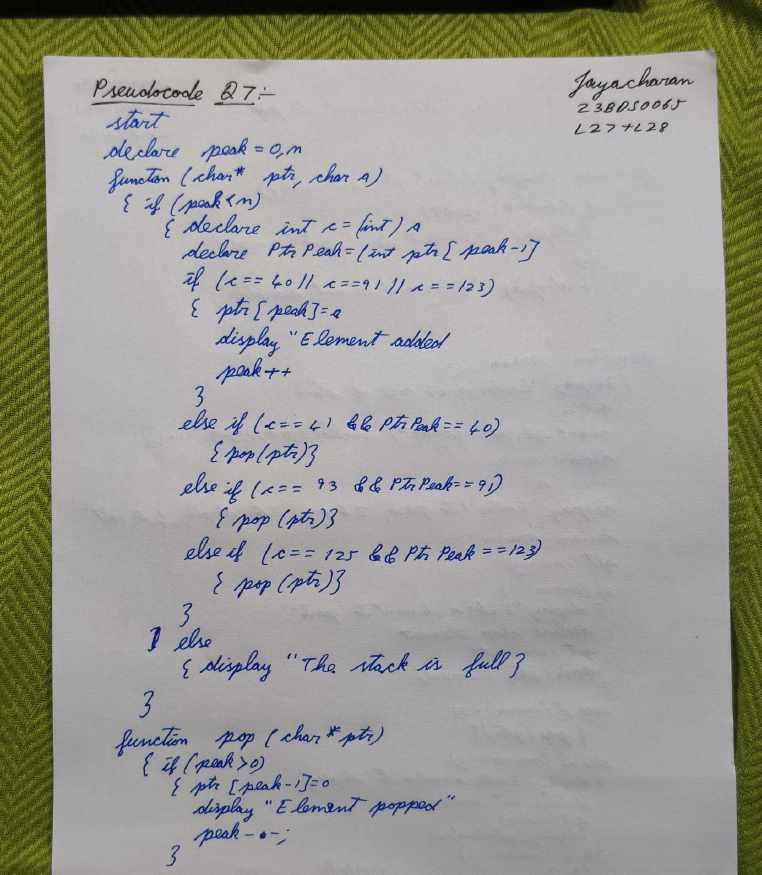 Pseudocode Q7:-
Jayacharan
23BDS0065
L27+L28
start
declare peak = 0, n
function (char* ptr, char a)
{ if (peak < n)
{ declare int c = (int) a
declare Ptr Peak = (int ptr [ peak-1]
if (c == 40 || c == 91 || c == 123)
{ ptr [ peak] = a
display "Element added
peak ++
}
else if (c == 41 && Ptr Peak == 40)
{ pop (ptr) }
else if (c == 93 && Ptr Peak == 91)
{ pop (ptr) }
else if (c == 125 && Ptr Peak == 123)
{ pop (ptr) }
}
else
{ display "The stack is full }
}
function pop ( char * ptr)
{ if (peak > 0)
{ ptr [peak-1] = 0
display "Element popped"
peak --;
}